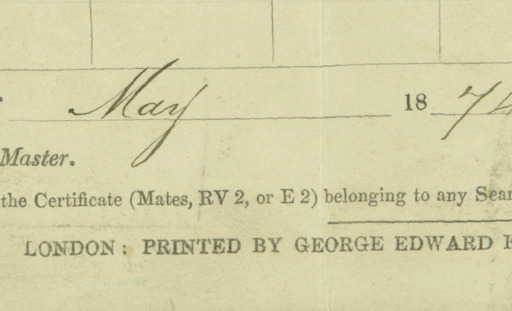 May 1874
Master.
the Certificate (Mates, RV 2, or E 2) belonging to any
LONDON: PRINTED BY GEORGE EDWARD